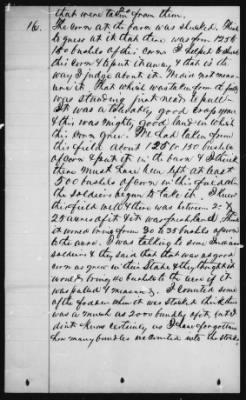 that were taken from them.
16. The corn at the farm was shucked. I had
to guess at it that there was from 125 to
150 bushels of this corn. I helped to shuck
this corn & put it away & that is the
way I judge about it. We did not meas-
ure it. That which was taken from the field
was standing just next to full.
It was a mighty, good crop year
& this was mighty good land on which
this corn grew. We had taken from
this field about 125 or 150 bushels
of corn & put it in the barn & I think
there must have been left at least
500 bushels of corn in this field when
the soldiers began to take it. I knew
this field well & there was between 20 &
25 acres of it & it was fresh land. I think
it would bring from 30 to 35 bushels of corn
to the acre. I was talking to some Indiana
soldiers & they said that that was as good
corn as grew in their State & they thought it
would bring 40 bushels to the acre if it
was pulled & measured. I counted some
of the fodder when it was stacked & think there
was as much as 2000 bundles of it, but I
dont know certainly as I have forgotten
how many bundles we counted into the stack.